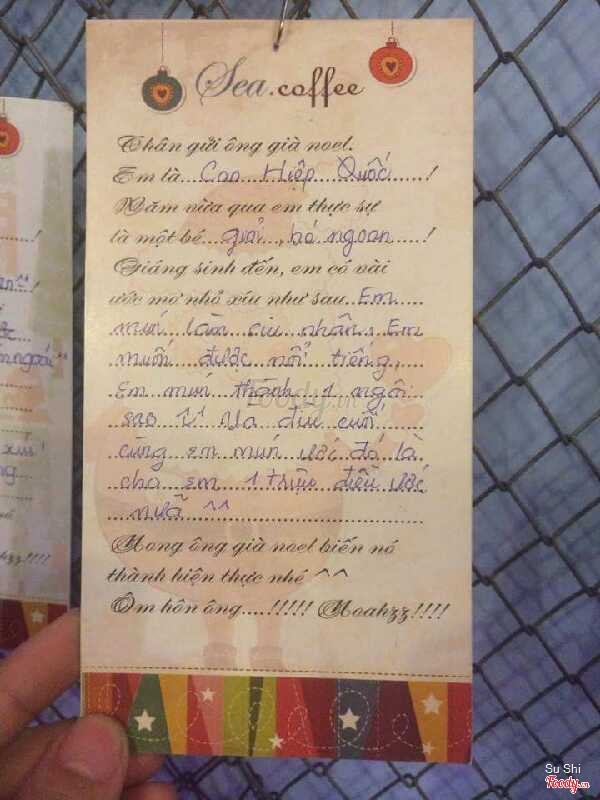 Sea.coffee
Thân gửi ông già noel.
Em là Cao Hiệp Quốc !
Năm vừa qua em thực sự
là một bé giỏi, bé ngoan !
Giáng sinh đến, em có vài
ước mơ nhỏ xíu như sau Em
muń làm ciu nhân, Em
muốn được nổi tiếng,
Em muń thành 1 ngôi
sao Và đìu cuối
cùng em muń ước đó là
cho em 1 triệu điều ước
nữa ^^
Mong ông già noel biến nó
thành hiện thực nhé ^^
Ôm hôn ông....!!!!! Moahzz!!!!
!
!
ngoài
xíu
hzz!!!!
Foody.vn
Su Shi
Foody.vn